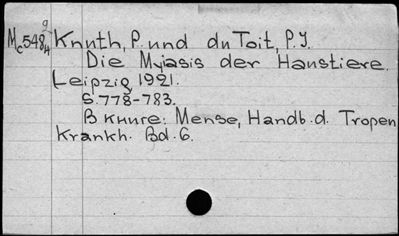 Mc548 9/4 Knuth, P. und du Toit, P.J.
Die Myiasis der Haustiere.
Leipzig 1921.
S. 778-783.
В книге: Mense, Handb. d. Tropen
Krankh. Bd. 6.